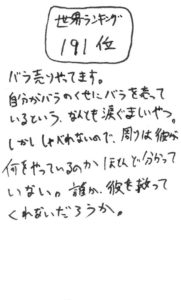 世界ランキング
191位
バラ売りやってます。
自分がバラのくせに、バラを売って
いるという、なんとも涙ぐましいやつ。
しかし しゃべれないので、周りは彼が
何をやっているのかほとんど分かって
いない。誰か、彼を救って
くれないだろうか。